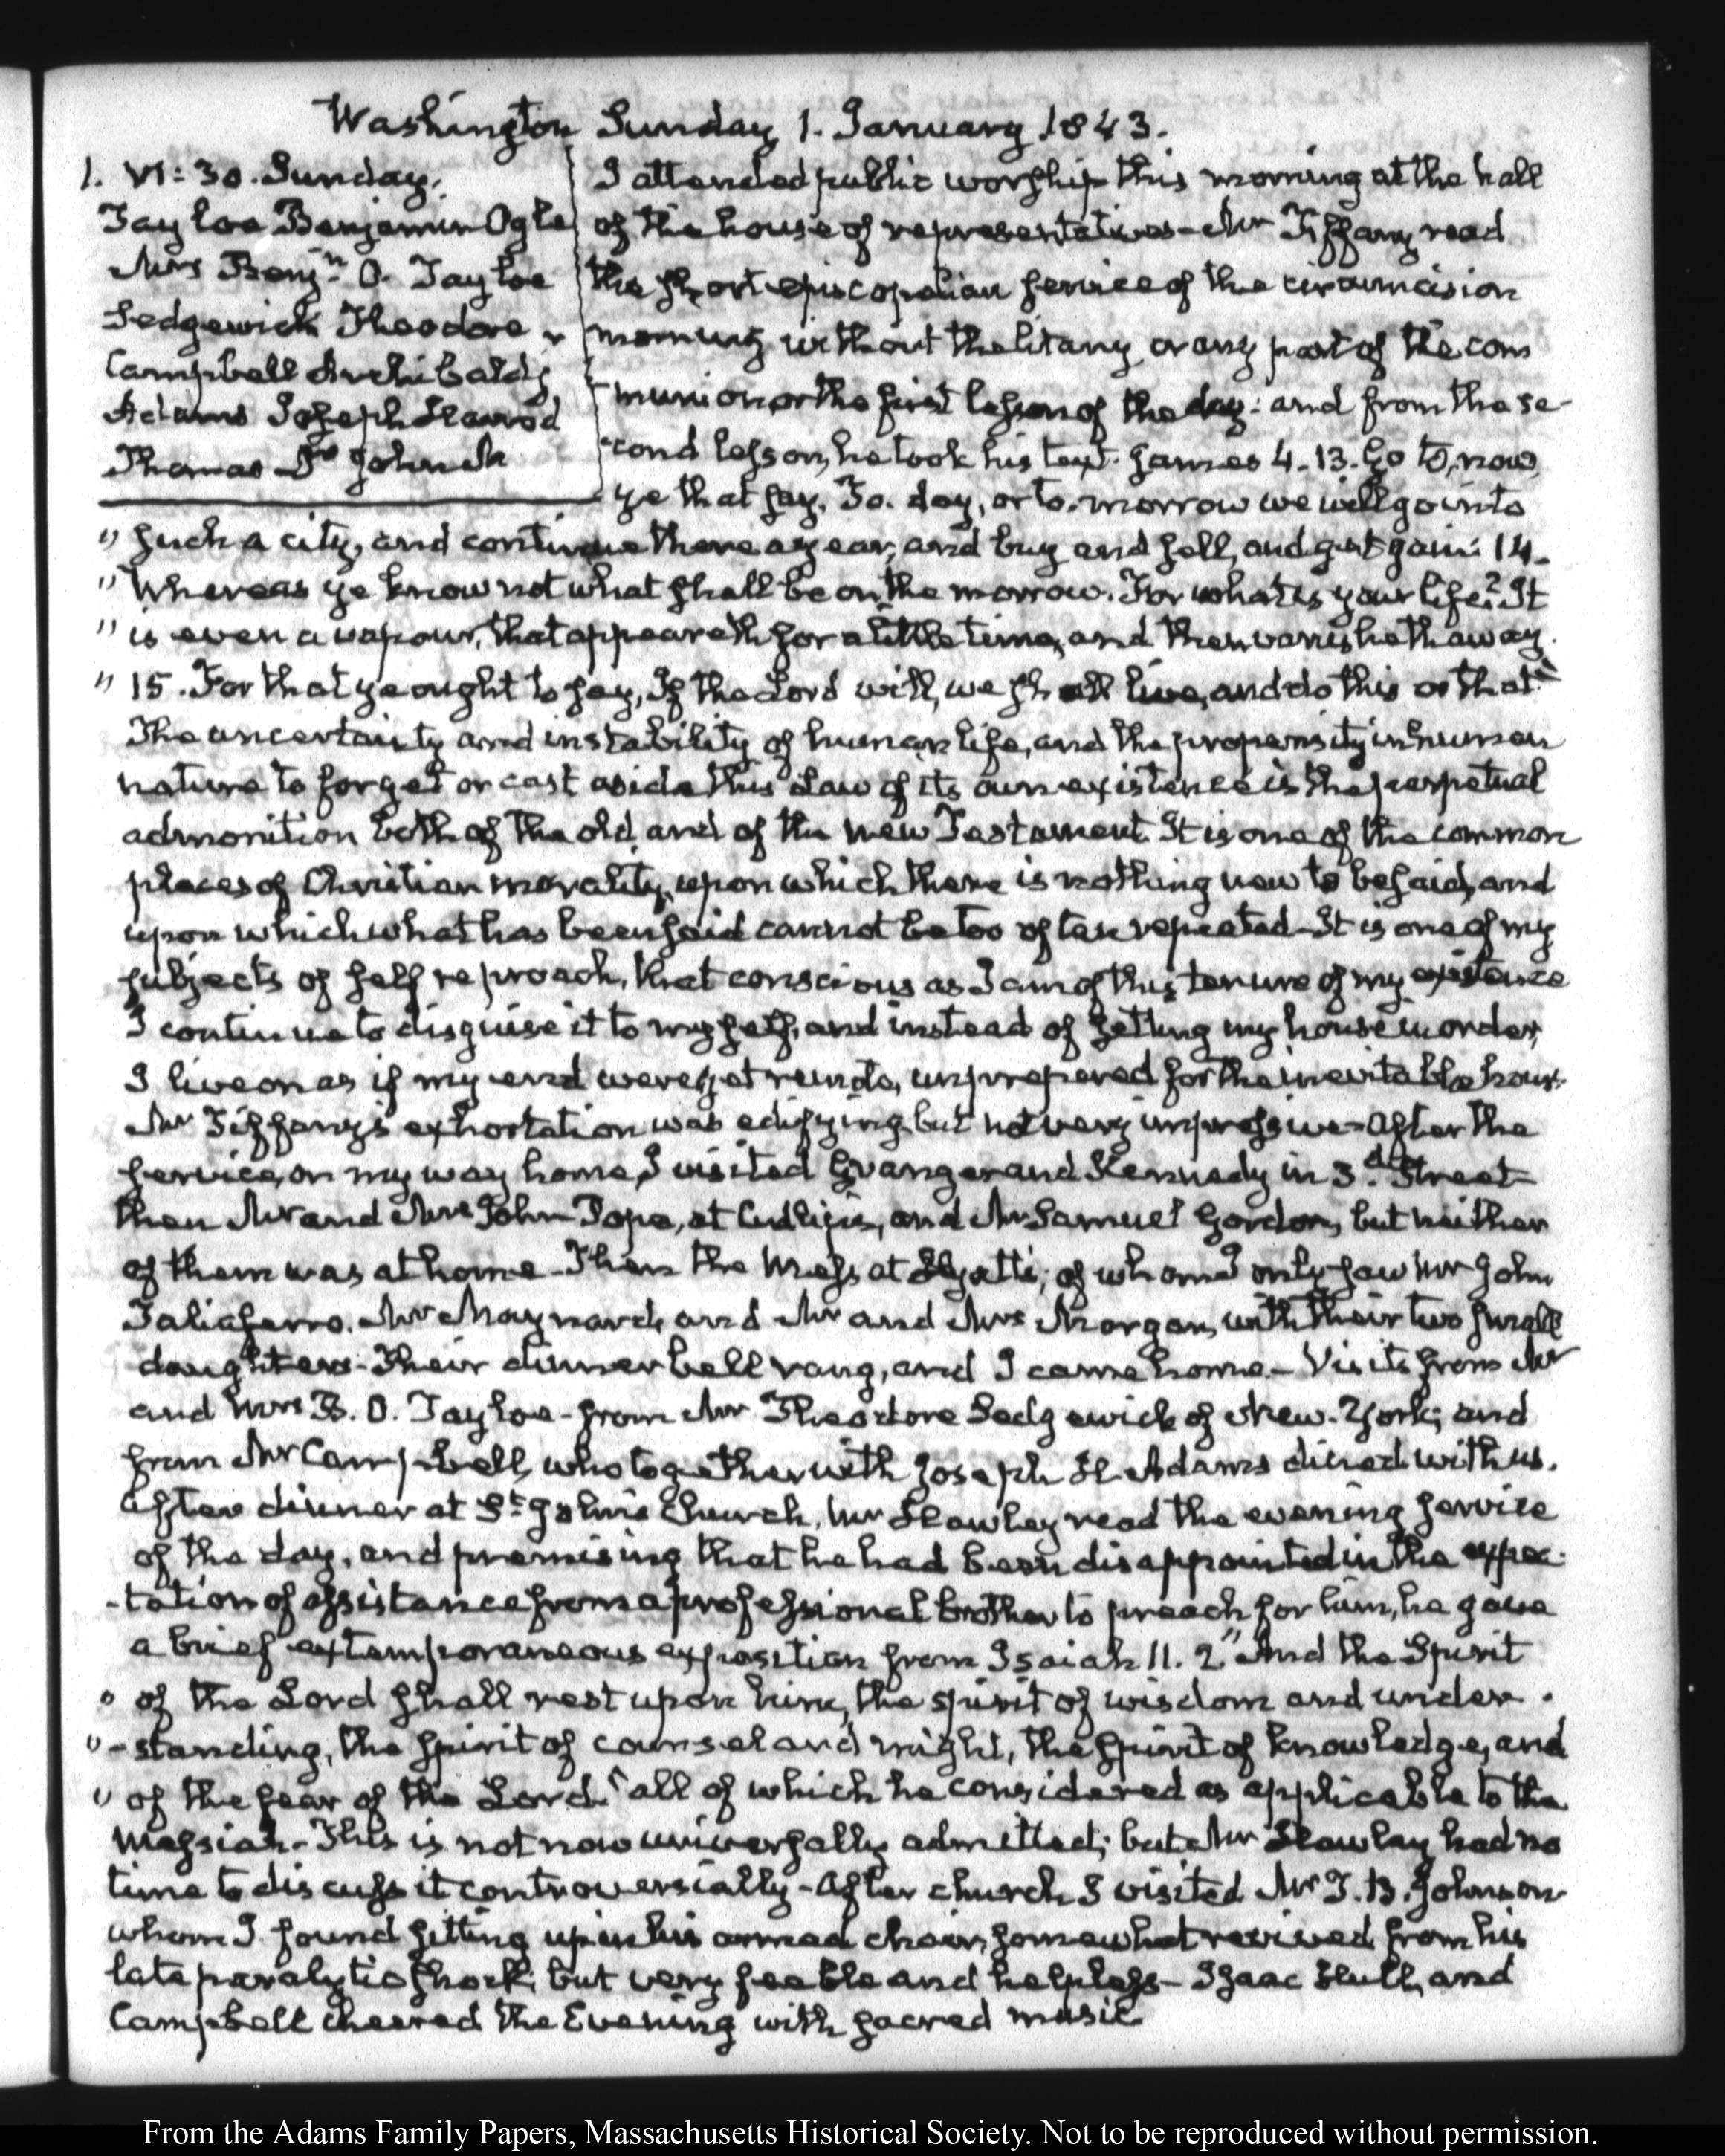 Washington Sunday 1. January 1843.
1. VI: 30. Sunday.
Tayloe Benjamin Ogle
Mrs Benjn. O. Tayloe
Sedgewick Theodore
Campbell Archibald
Adams Joseph Harrod
Thomas Dr John
I attended public worship this morning at the hall
of the house of representatives - Mr Tiffany read
the short episcopalian service of the circumcision
morning without the litany or any part of the com
munion or the first lesson of the day: and from the se-
cond lesson, he took his text. James 4. 13. Go to, now
ye that say, To. day, or to. morrow we will go into
" such a city, and continue there a year, and buy and sell, and get gain: 14.
" Whereas ye know not what shall be on the morrow. For what is your life? It
" is even a vapour, that appeareth for a little time, and then vanisheth away.
" 15. For that ye ought to say, If the Lord will, we shall live, and do this or that"
The uncertainty and instability of human life, and the propensity in human
nature to forget or cast aside this Law of its own existence is the perpetual
admonition both of the old and of the new Testament. It is one of the common
places of Christian morality, upon which there is nothing new to be said, and
upon which what has been said cannot be too often repeated - It is one of my
subjects of self reproach, that conscious as I am of this tenure of my existence
I continue to disguise it to myself, and instead of setting my house in order,
I live on as if my end were yet remote, unprepared for the inevitable hour.
Mr Tiffany's exhortation was edifying but not very impressive - After the
service, on my way home, I visited Granger and Kennedy in 3.d Street
then Mr and Mrs John Pope, at and Mr Samuel Gordon, but neither
of them was at home - Then the Mess at Hyatt's; of whom I only saw Mr John
Taliaferro. Mr Maynard, and Mr and Mrs Morgan, with their two small
daughters - Their dinner bell rang, and I came home. - Visits from Mr
and Mrs B. O. Tayloe - from Mr Theodore Sedgewick of New-York; and
from Mr Campbell, who together with Joseph H. Adams dined with us.
After dinner at St. John's Church, Mr Hawley read the evening service
of the day, and premising that he had been disappointed in the expec-
-tation of assistance from a professional brother to preach for him, he gave
a brief extemporaneous exposition from Isaiah 11. 2 "And the Spirit
" of the Lord shall rest upon him, the spirit of wisdom and under-
" -standing, the spirit of counsel and might, the spirit of knowledge, and
" of the fear of the Lord." all of which he considered as applicable to the
Messiah - This is not now universally admitted; but Mr Hawley had no
time to discuss it controversially - After church I visited Mr T. B. Johnson
whom I found sitting up in his armed chair, somewhat revived from his
late paralytic shock; but very feeble and helpless - Isaac Hull, and
Campbell cheered the Evening with sacred music
From the Adams Family Papers, Massachusetts Historical Society. Not to be reproduced without permission.